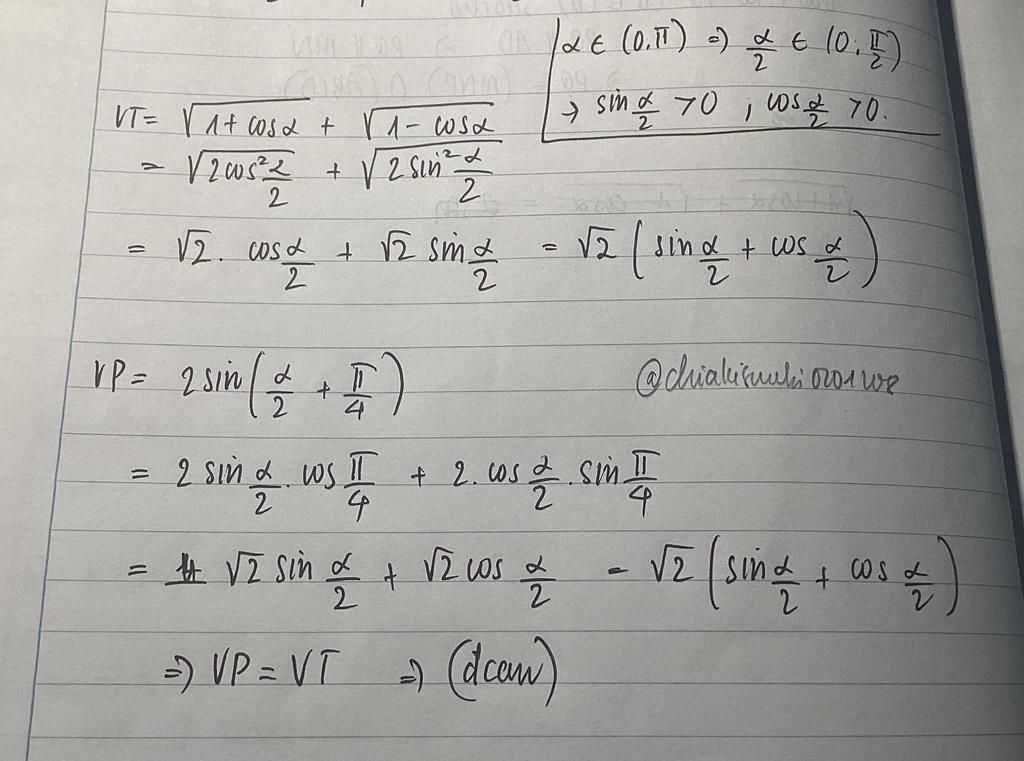 α ∈ (0,π) ⇒ α/2 ∈ (0,π/2)
→ sin α/2 > 0 ; cos α/2 > 0.
VT = √(1 + cosα) + √(1 - cosα)
= √(2cos² α/2) + √(2 sin² α/2)
= √2 . cos α/2 + √2 sin α/2 = √2 (sin α/2 + cos α/2)
VP = 2 sin(α/2 + π/4)
= 2 sin α/2 . cos π/4 + 2. cos α/2 . sin π/4
= √2 sin α/2 + √2 cos α/2 = √2 (sin α/2 + cos α/2)
⇒ VP = VT ⇒ (đccm)